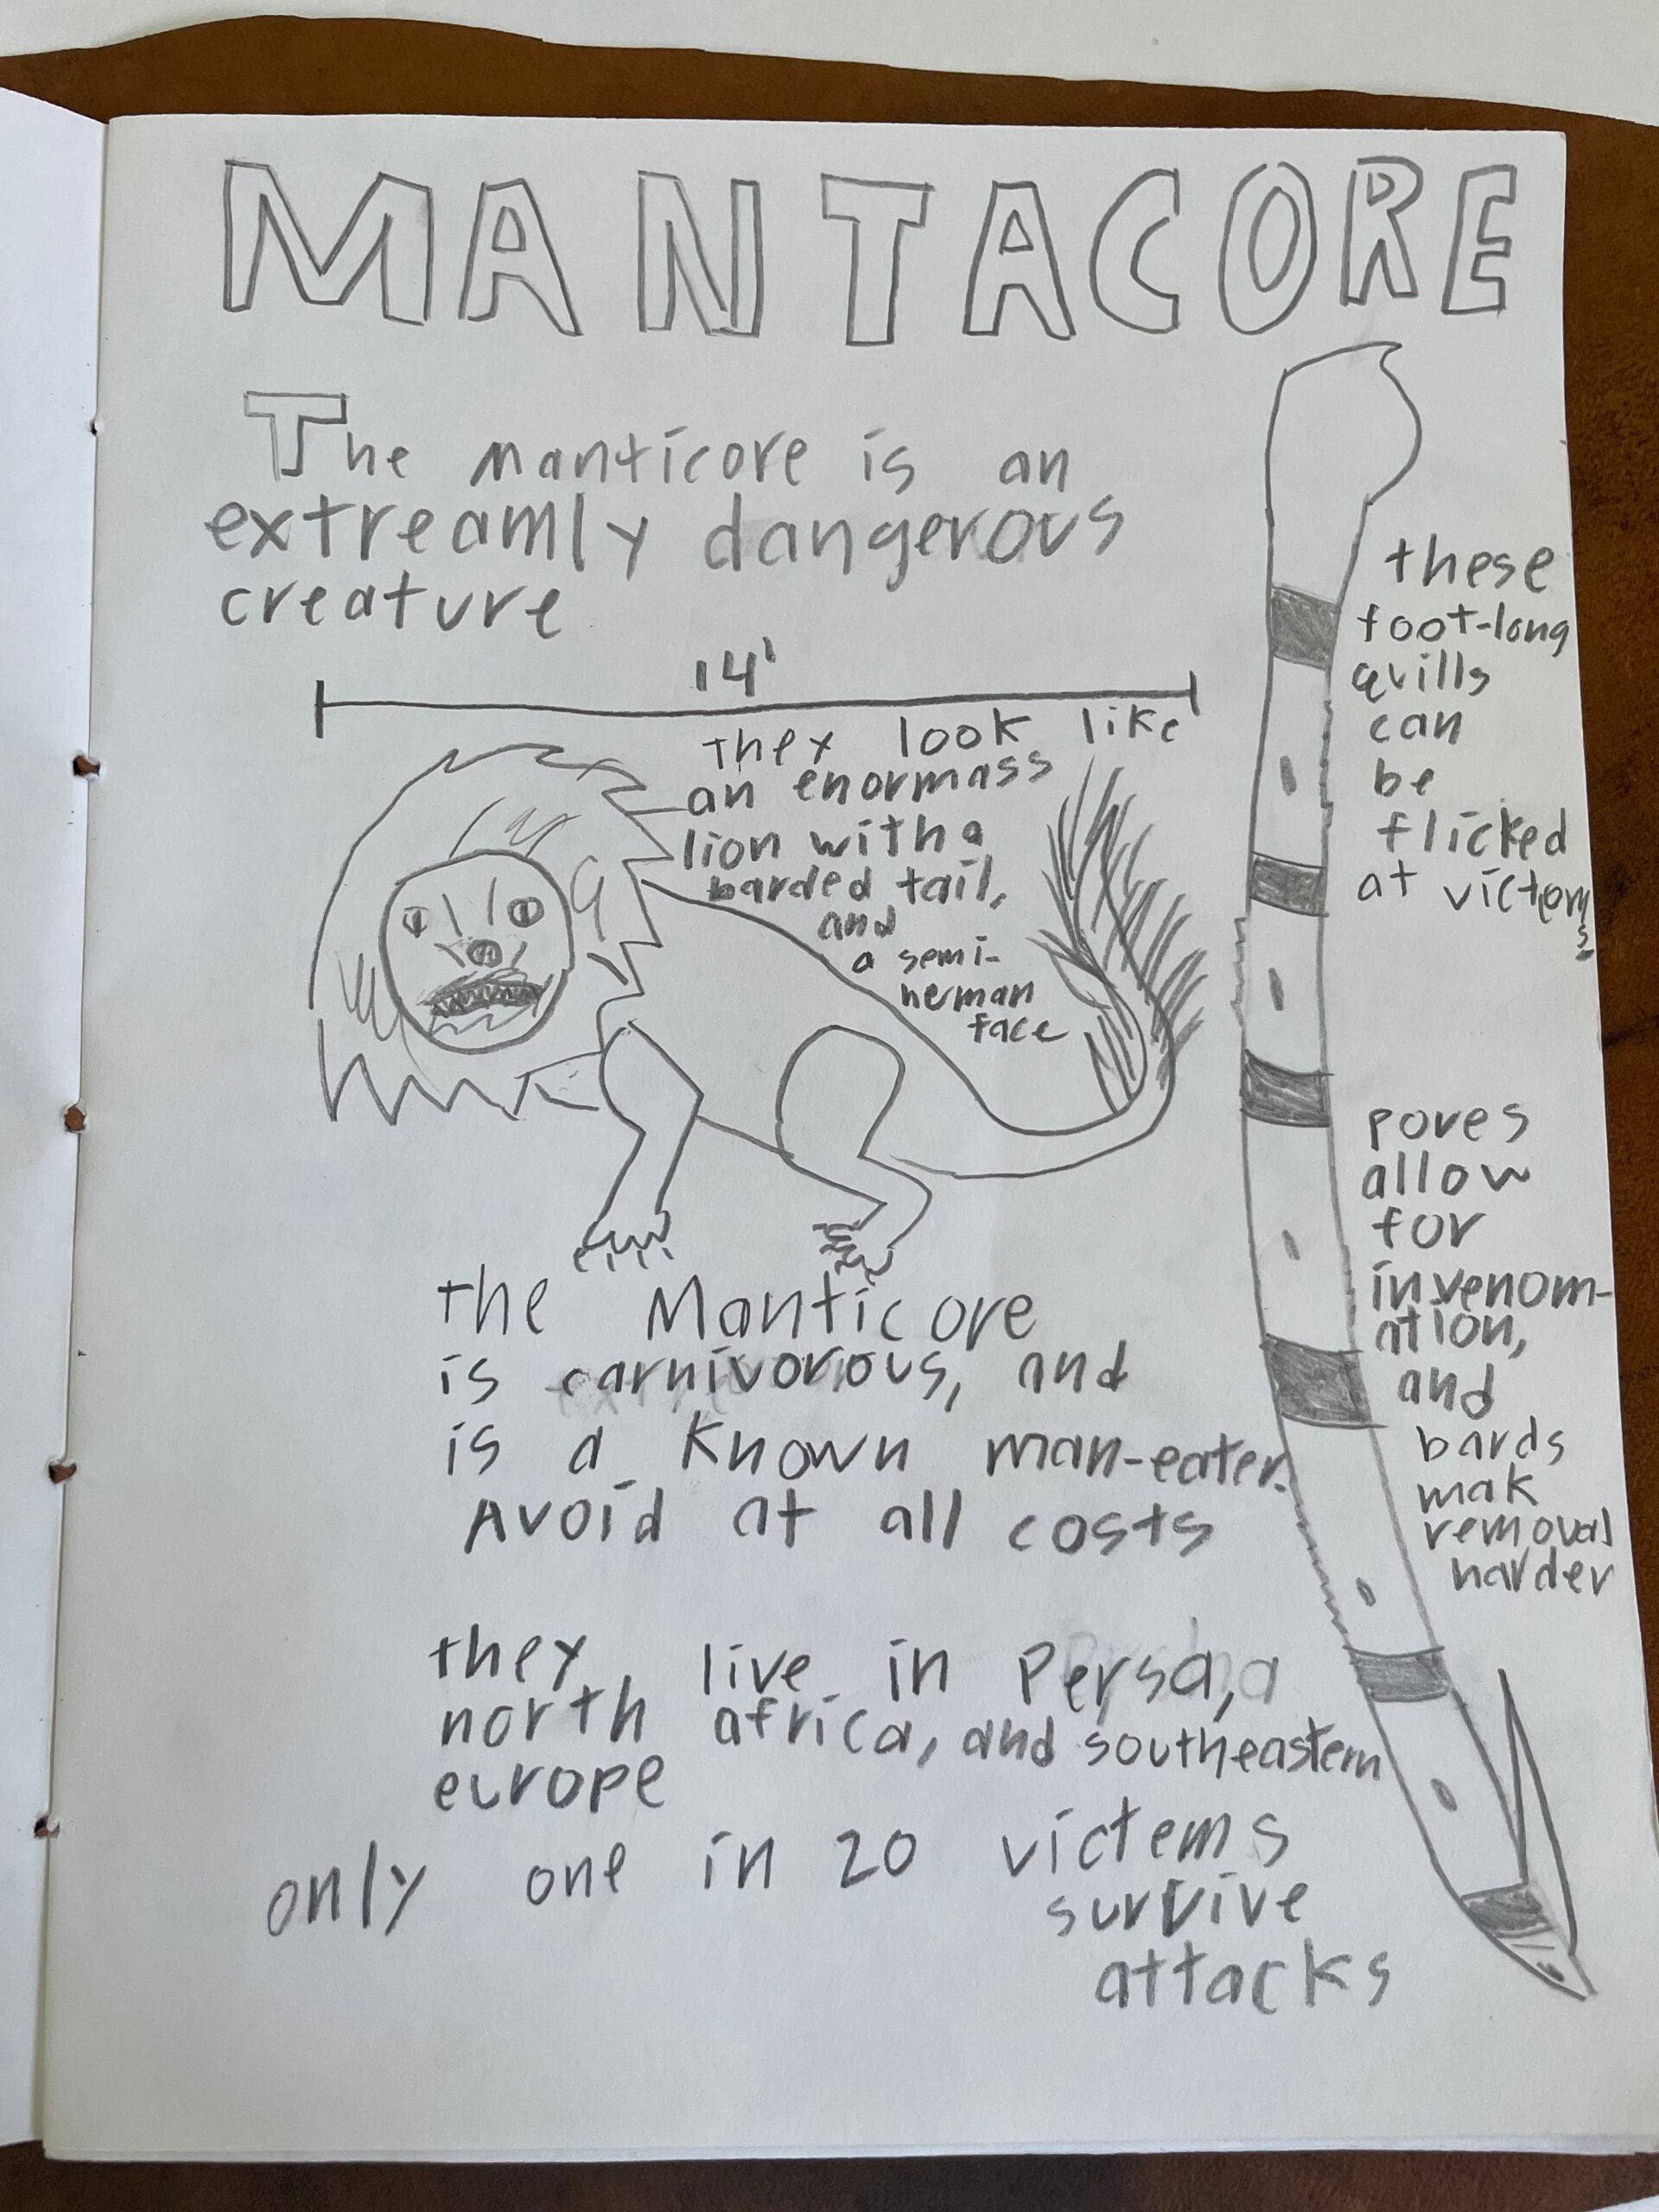 MANTACORE
The manticore is an
extreamly dangerous
creature
14'
they look like
an enormass
lion with a
barded tail,
and
a semi-
herman
face
these
foot-long
quills
can
be
flicked
at victems
pores
allow
for
invenom-
ation,
and
bards
mak
removal
harder
the Manticore
is carnivorous, and
is a known man-eater.
Avoid at all costs
they live in Persa,
north africa, and southeastern
europe
only one in 20 victems
survive
attacks